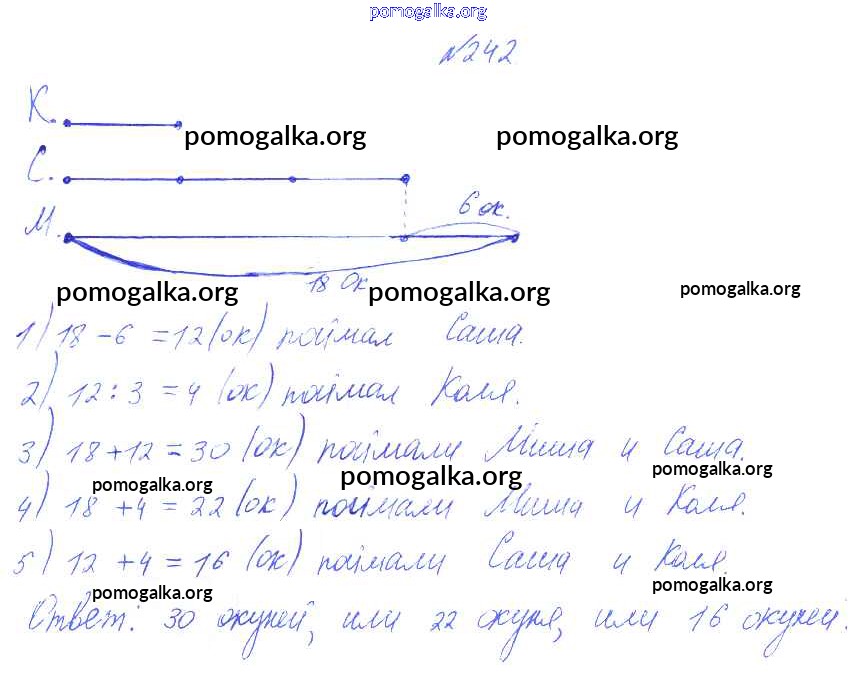 pomogalka.org
№242
К.
pomogalka.org pomogalka.org
С.
6 ок.
М.
18 Ок
pomogalka.org pomogalka.org pomogalka.org
1) 18 - 6 = 12 (ок) поймал Саша.
2) 12 : 3 = 4 (ок) поймал Коля.
3) 18 + 12 = 30 (ок) поймали Миша и Саша.
pomogalka.org pomogalka.org pomogalka.org
4) 18 + 4 = 22 (ок) поймали Миша и Коля.
5) 12 + 4 = 16 (ок) поймали Саша и Коля.
pomogalka.org pomogalka.org
Ответ: 30 окуней, или 22 окуня, или 16 окуней.